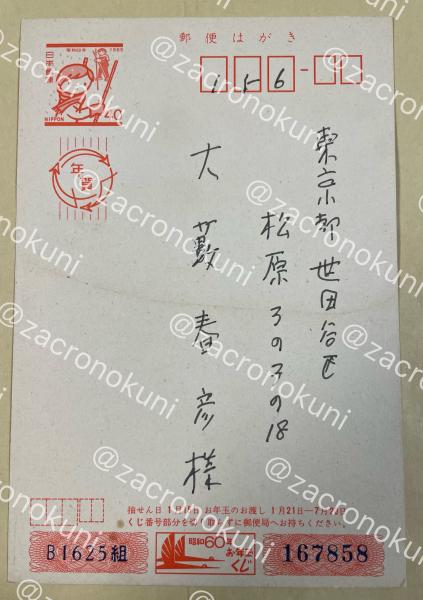 郵便はがき
昭和60年 1985
日本郵便
NIPPON
40
年賀
156-
東京都世田谷区
松原3の3の18
大藪春彦様
抽せん日 1月15日 お年玉のお渡し 1月21日―7月20日
くじ番号部分を切り取らずに郵便局へお持ちください。
B1625組
昭和60年
お年玉
くじ
167858
@zacronokuni
@zacronokuni
@zacronokuni
@zacronokuni
@zacronokuni
@zacronokuni
@zacronokuni
@zacronokuni